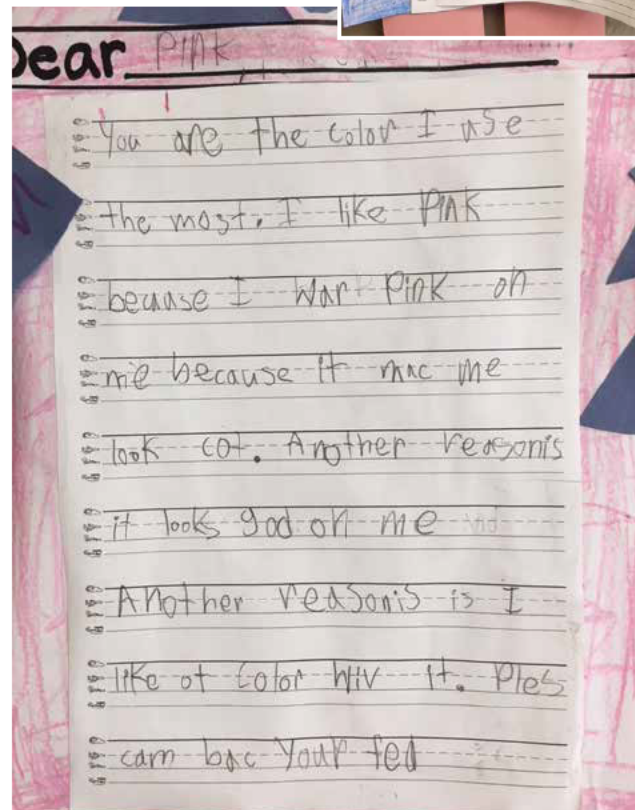 Dear Pink
You are the color I use
the most. I like Pink
beuase I war Pink on
me because it mac me
look cot. Another reasonis
it looks god on me
Another reasonis is I
like ot color wiv it. Ples
cam bac your fed